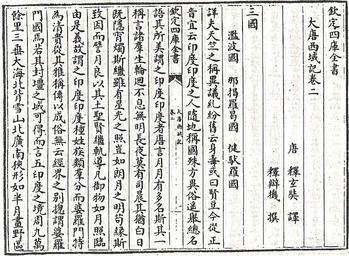 欽定四庫全書
大唐西域記卷二
唐 釋玄奘 譯
釋辯機 撰
三國
濫波國 那揭羅曷國 健馱羅國
詳夫天竺之稱異議糺紛舊云身毒或曰賢豆今從正
音宜云印度印度之人隨地稱國殊方異俗遥舉總名
欽定四庫全書
大唐西域記
卷二
語其所美謂之印度印度者唐言月月有多名斯其一
稱言諸羣生輪迴不息無明長夜莫有司晨其猶白日
既隱宵燭斯繼雖有星光之照豈如朗月之明茍緣斯
致因而譬月良以其土聖賢繼軌導凡御物如月照臨
由是義故謂之印度印度種姓族類羣分而婆羅門特
為清貴從其雅稱傳以成俗無云經界之别總謂婆羅
門國焉若其封疆之域可得而言五印度之境周九萬
餘里三垂大海北背雪山北廣南狹形如半月畫野區